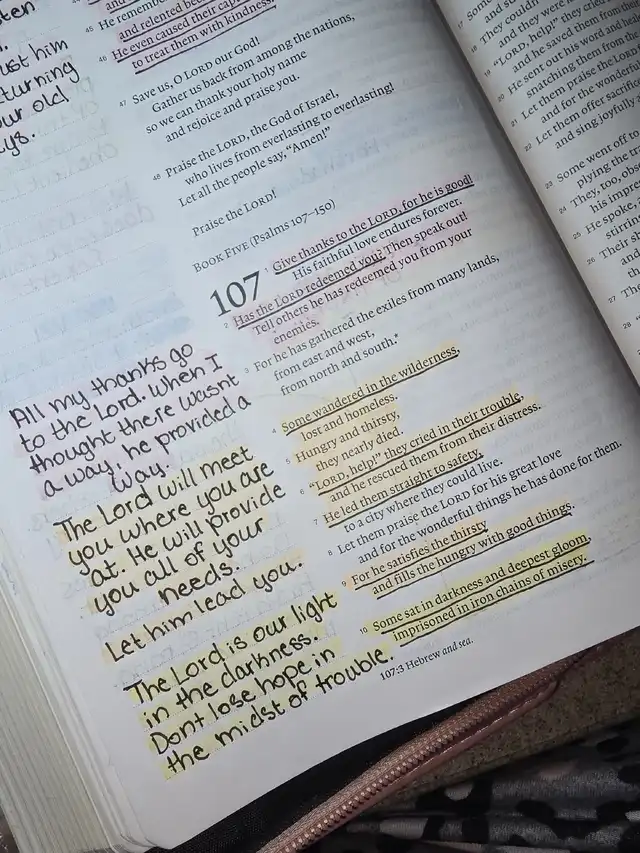 45 He remembe
and relented
46 He even caused their
to treat them with kindness.
47 Save us, O LORD our God!
Gather us back from among the nations,
so we can thank your holy name
and rejoice and praise you.
48 Praise the LORD, the God of Israel,
who lives from everlasting to everlasting!
Let all the people say, “Amen!”
Praise the LORD!
BOOK FIVE (Psalms 107–150)
107
1 Give thanks to the LORD, for he is good!
His faithful love endures forever.
2 Has the LORD redeemed you? Then speak out!
Tell others he has redeemed you from your
enemies.
3 For he has gathered the exiles from many lands,
from east and west,
from north and south.*
4 Some wandered in the wilderness,
lost and homeless.
5 Hungry and thirsty,
they nearly died.
6 “LORD, help!” they cried in their trouble,
and he rescued them from their distress.
7 He led them straight to safety,
to a city where they could live.
8 Let them praise the LORD for his great love
and for the wonderful things he has done for them.
9 For he satisfies the thirsty
and fills the hungry with good things.
10 Some sat in darkness and deepest gloom,
imprisoned in iron chains of misery.
107:3 Hebrew and sea.
ust him
eturning
our old
ys.
All my thanks go
to the Lord. When I
thought there wasnt
a way, he provided a
way.
The Lord will meet
you where you are
at. He will provide
you all of your
needs.
Let him lead you.
The Lord is our light
in the darkness.
Dont lose hope in
the midst of trouble.
18 They couldn
and they were
19 “LORD, help!” they cried
and he saved them from
20 He sent out his word and
snatching them from the
21 Let them praise the LORD
and for the wonderful
22 Let them offer sacrifice
and sing joyfully
23 Some went off
plying the tra
24 They, too, obs
his impre
25 He spoke,
stirri
26 Their sh
and
27 The
28 “